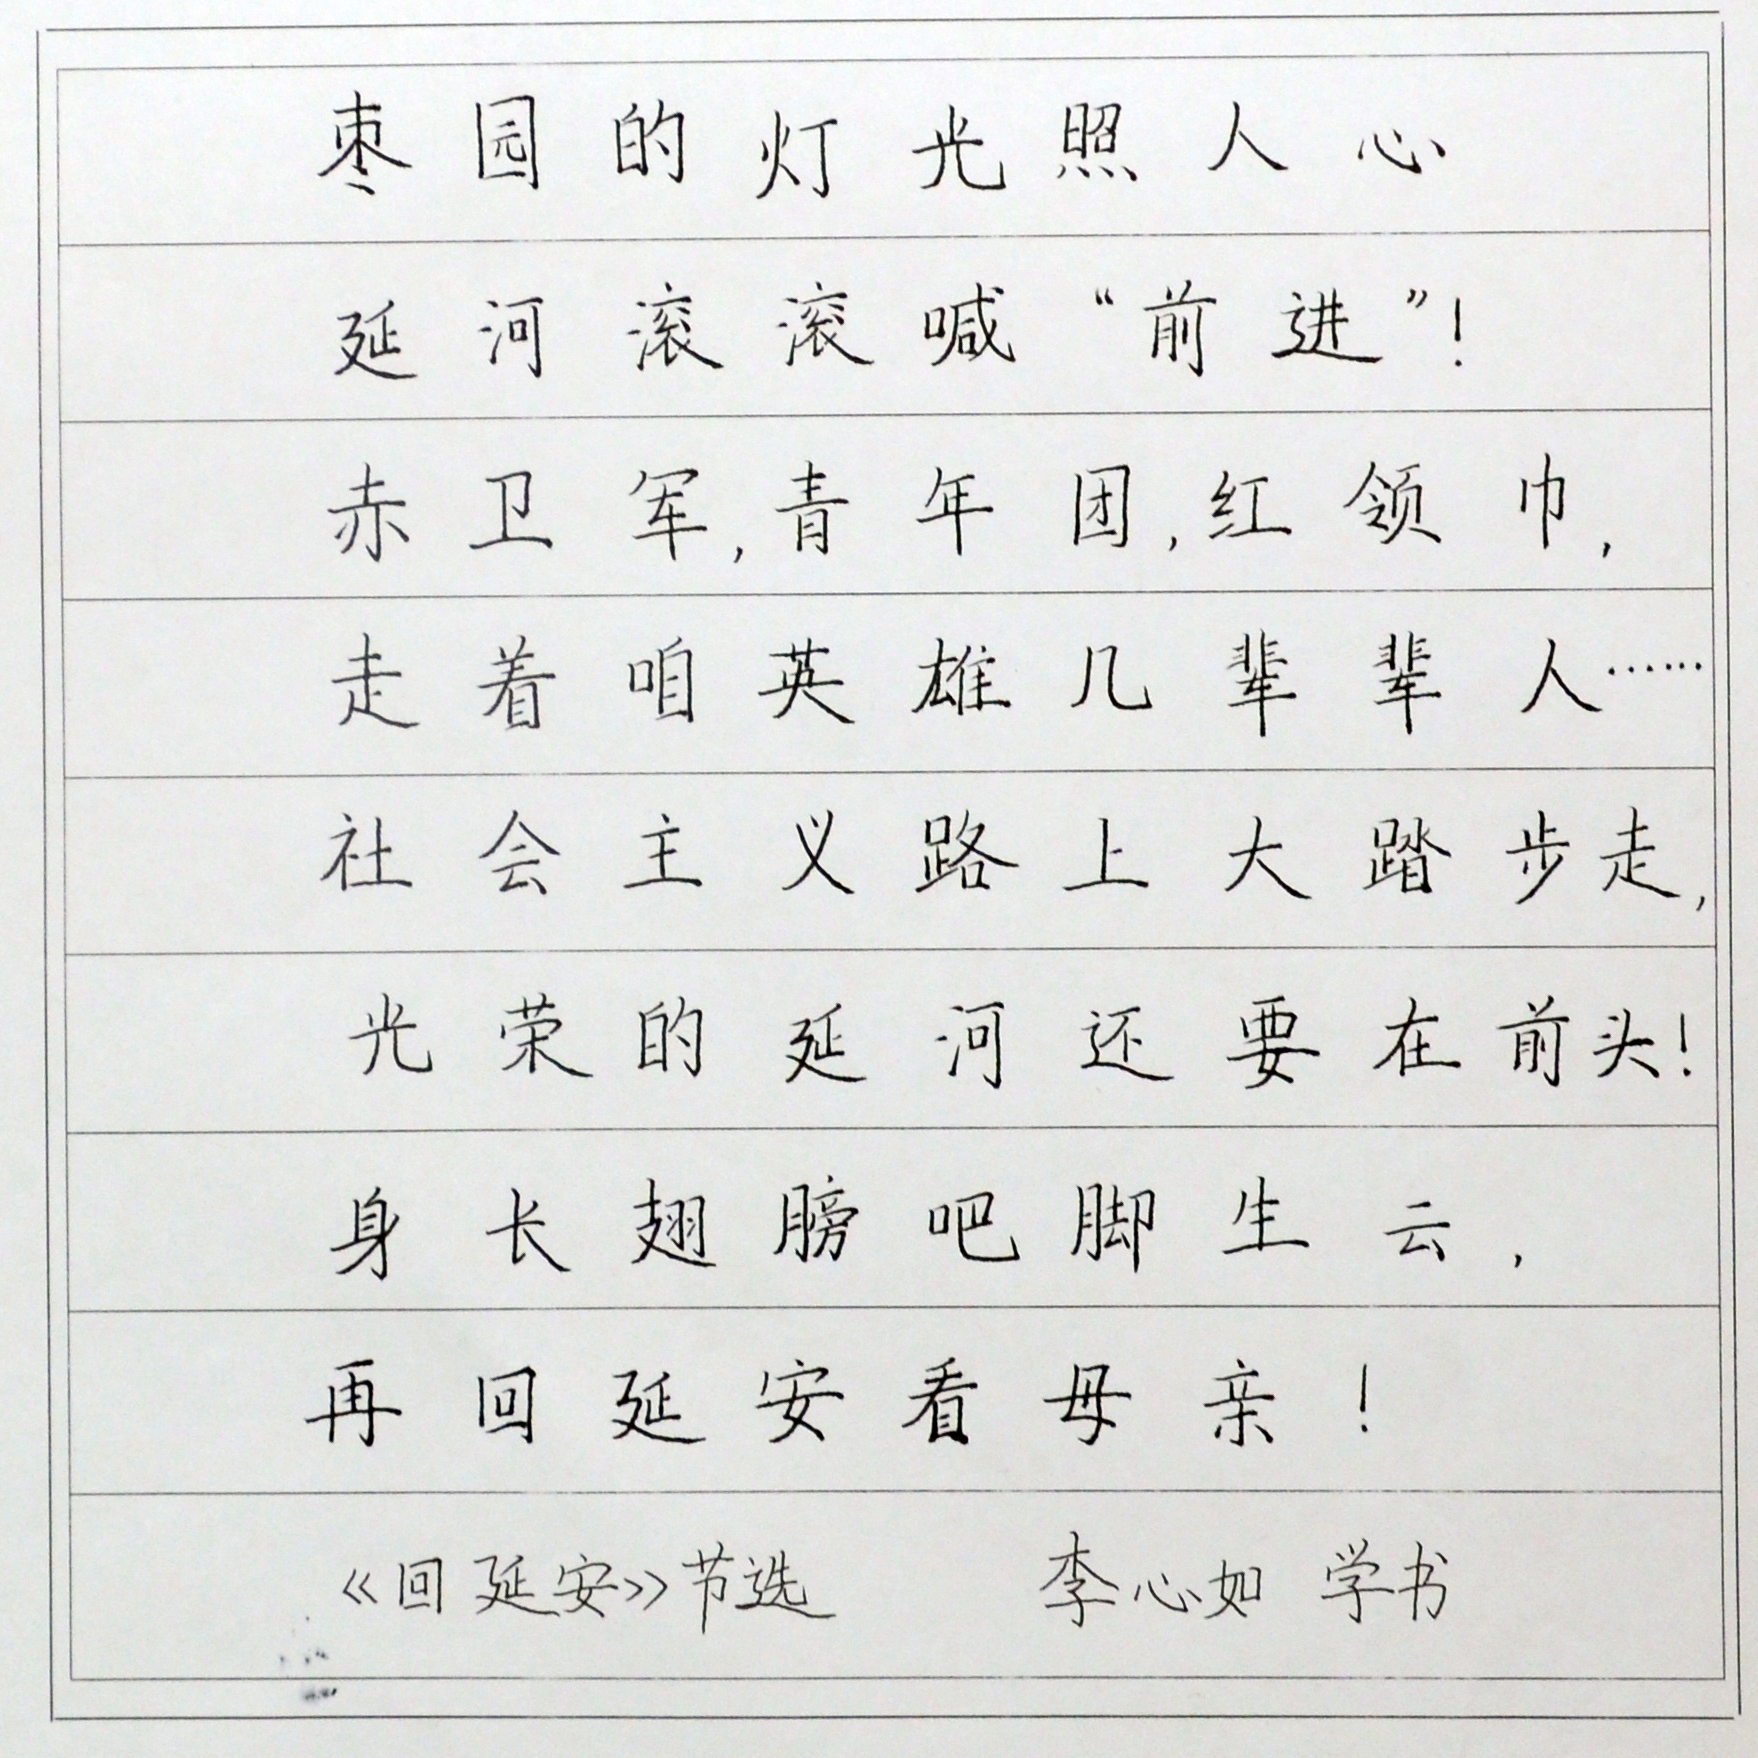 枣园的灯光照人心
延河滚滚喊“前进”！
赤卫军,青年团,红领巾,
走着咱英雄几辈辈人……
社会主义路上大踏步走,
光荣的延河还要在前头!
身长翅膀吧脚生云,
再回延安看母亲!
《回延安》节选 李心如 学书